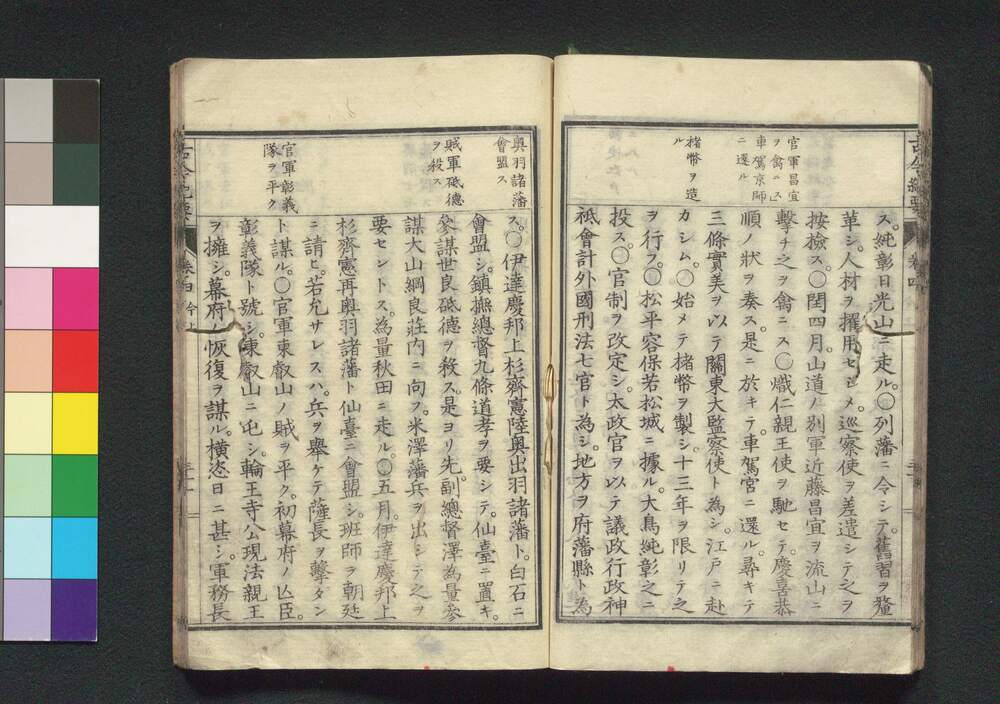 官軍昌宜
ヲ禽ニス
車駕京師
ニ還ル
楮幣ヲ造
ル
ス。純彰日光山ニ走ル。〇列藩ニ令シテ。舊習ヲ釐
革シ。人材ヲ擢用セシメ。巡察使ヲ差遣シテ之ヲ
按撿ス。〇閏四月。山道ノ別軍近藤昌宜ヲ流山ニ
擊チ之ヲ禽ニス〇熾仁親王使ヲ馳セテ。慶喜恭
順ノ狀ヲ奏ス。是ニ於キテ。車駕宮ニ還ル。尋キテ
三條實美ヲ以テ關東大監察使ト為シ。江戸ニ赴
カシム。〇始メテ楮幣ヲ製シ。十三年ヲ限リテ之
ヲ行フ。〇松平容保若松城ニ據ル。大鳥純彰之ニ
投ス。〇官制ヲ改定シ。太政官ヲ以テ議政行政神
祇會計外國刑法七官ト為シ。地方ヲ府藩縣ト為
古今紀要
卷四
奥羽諸藩
會盟ス
賊軍砥德
ヲ殺ス
官軍彰義
隊ヲ平ク
ス。〇伊達慶邦上杉齊憲陸奥出羽諸藩ト。白石ニ
會盟シ。鎮撫總督九條道孝ヲ要シテ。仙臺ニ置キ。
參謀世良砥德ヲ殺ス。是ヨリ先。副總督澤為量參
謀大山綱良莊内ニ向フ。米澤藩兵ヲ出シテ之ヲ
要セントス。為量秋田ニ走ル。〇五月。伊達慶邦上
杉齊憲再奥羽諸藩ト仙臺ニ會盟シ。班師ヲ朝廷
ニ請ヒ。若允サレスハ。兵ヲ擧ケテ薩長ヲ擊タン
ト謀ル。〇官軍東叡山ノ賊ヲ平ク。初幕府ノ亾臣。
彰義隊ト號シ。東叡山ニ屯シ。輪王寺公現法親王
ヲ擁シ。幕府ノ恢復ヲ謀ル。橫恣日ニ甚シ。軍務長
古今紀要
卷四